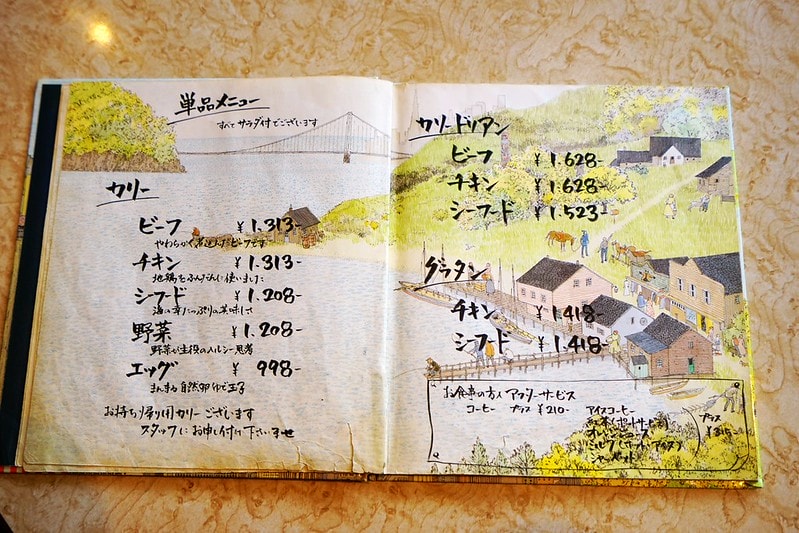 単品メニュー
すべてサラダ付でございます
カリー
ビーフ ¥1.313-
やわらかく煮込んだビーフです
チキン ¥1.313-
地鶏をふんだんに使いました
シーフード ¥1.208-
海の幸たっぷりの美味しさ
野菜 ¥1.208-
野菜が主役のヘルシー思考
エッグ ¥998-
自然卵ゆで玉子
お持ち帰り用カリーございます
スタッフにお申し付け下さいませ
カリードリアン
ビーフ ¥1.628-
チキン ¥1.628-
シーフード ¥1.523-
グラタン
チキン ¥1.418-
シーフード ¥1.418-
お食事の方へ アフターサービス
コーヒー プラス ¥210-
アイスコーヒー
紅茶(ポットサービス)
オレンジジュース
ミルク(ホット/アイス)
シャーベット
プラス